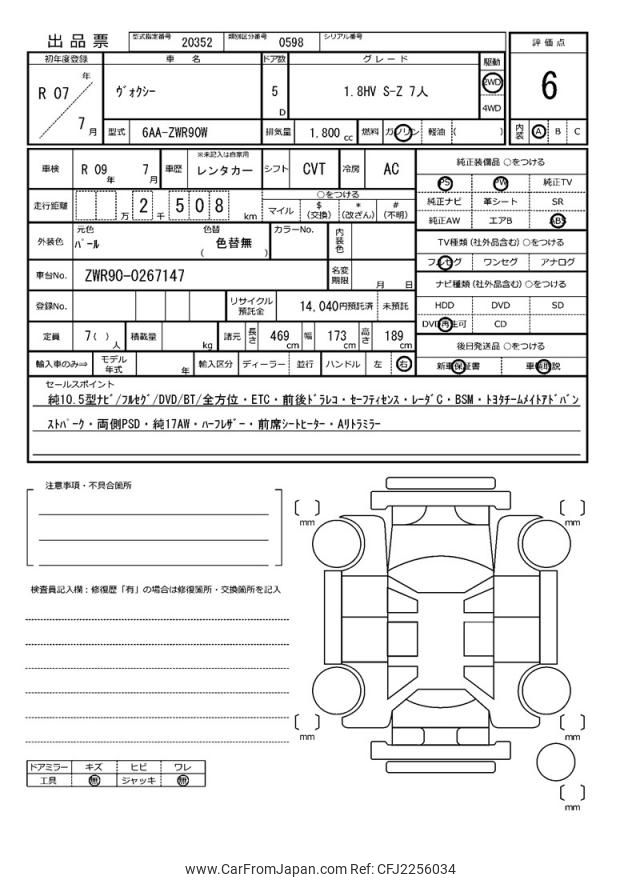 出品票 型式指定番号 20352 類別区分番号 0598 シリアル番号
評価点
6
内装 A B C
初年度登録 車名 ドア数 グレード 駆動
R 07 年 7 月 ヴォクシー 5 D 1.8HV S-Z 7人 2WD 4WD
型式 6AA-ZWR90W 排気量 1,800 cc 燃料 ガソリン 軽油 ( )
車検 R 09 年 7 月 車歴 ※未記入は自家用 レンタカー シフト CVT 冷房 AC
走行距離 万 2 千 5 0 8 km ○をつける マイル $(交換) *(改ざん) #(不明)
外装色 元色 パール 色替 色替無 ( ) カラーNo. 内装色
車台No. ZWR90-0267147 名変期限 月 日
登録No. リサイクル預託金 14,040円預託済 未預託
定員 7( ) 人 積載量 kg 諸元 長さ 469 cm 幅 173 cm 高さ 189 cm
輸入車のみ⇒ モデル年式 年 輸入区分 ディーラー 並行 ハンドル 左 右
純正装備品 ○をつける
PS PW 純正TV
純正ナビ 革シート SR
純正AW エアB ABS
TV種類(社外品含む)○をつける
フルセグ ワンセグ アナログ
ナビ種類(社外品含む)○をつける
HDD DVD SD
DVD再生可 CD
後日発送品 ○をつける
新車保証書 車輌取説
セールスポイント
純10.5型ナビ/フルセグ/DVD/BT/全方位・ETC・前後ドラレコ・セーフティセンス・レーダC・BSM・トヨタチームメイトアドバン
ストパーク・両側PSD・純17AW・ハーフレザー・前席シートヒーター・Aリトラミラー
注意事項・不具合箇所
検査員記入欄:修復歴「有」の場合は修復箇所・交換箇所を記入
[ ] mm [ ] mm
[ ] mm [ ] mm
[ ] mm
ドアミラー キズ ヒビ ワレ
工具 無 ジャッキ 無
www.CarFromJapan.com Ref: CFJ2256034